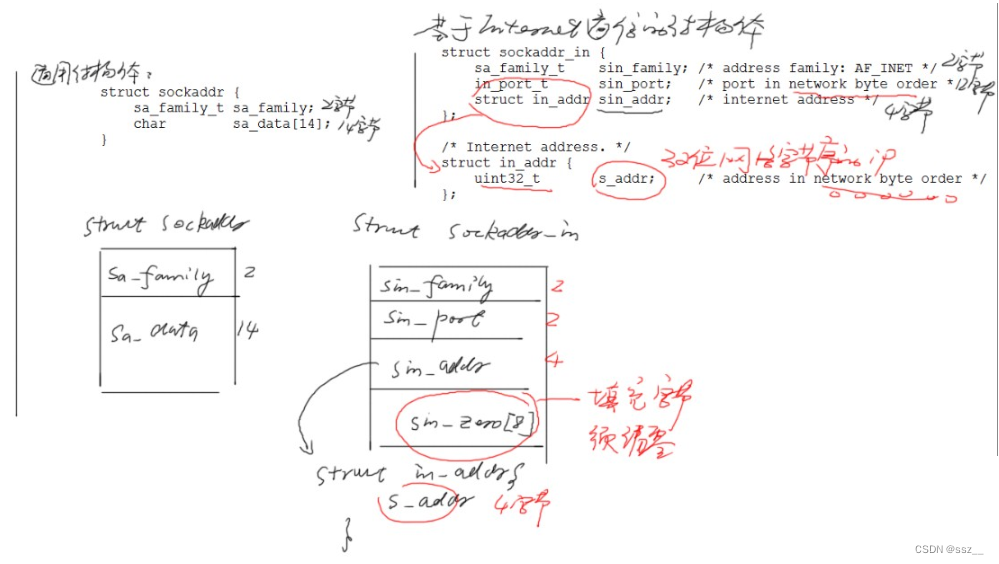 基于Internet通信的结构体
struct sockaddr_in {
sa_family_t sin_family; /* address family: AF_INET */ 2字节
in_port_t sin_port; /* port in network byte order */ 2字节
struct in_addr sin_addr; /* internet address */
4字节
};
/* Internet address. */
struct in_addr {
32位网络字节序的IP
uint32_t s_addr; /* address in network byte order */
};
通用结构体:
struct sockaddr {
sa_family_t sa_family; 2字节
char sa_data[14]; 14字节
}
struct sockaddr
sa_family 2
sa_data 14
struct sockaddr_in
sin_family 2
sin_port 2
sin_addr 4
sin_zero[8]
填充字节
须清零
struct in_addr{
s_addr 4字节
}
CSDN @ssz__